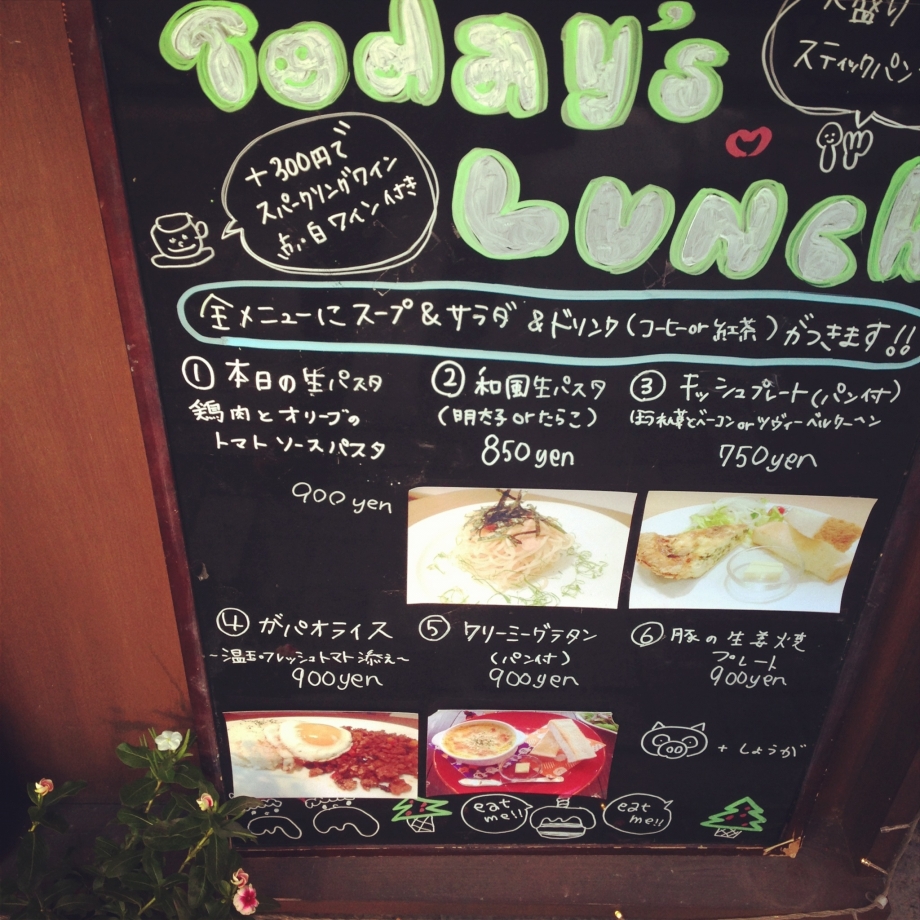 Today's
大盛り
スティックパン
Lunch
+300円で
スパークリングワイン
白ワイン付き
全メニューにスープ&サラダ&ドリンク(コーヒーor紅茶)がつきます!!
① 本日の生パスタ
鶏肉とオリーブの
トマトソースパスタ
900yen
② 和風生パスタ
(明太子orたらこ)
850yen
③ キッシュプレート(パン付)
ほうれん草とベーコンorツヴィーベルクーヘン
750yen
④ ガパオライス
~温玉・フレッシュトマト添え~
900yen
⑤ クリーミーグラタン
(パン付)
900yen
⑥ 豚の生姜焼
プレート
900yen
+しょうが
eat
me!!
eat
me!!